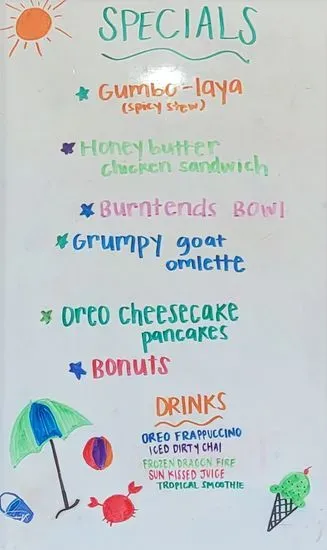 SPECIALS
Gumbo-laya
(spicy stew)
Honey butter
chicken sandwich
Burntends Bowl
Grumpy goat
omlette
Oreo cheesecake
pancakes
Bonuts
DRINKS
OREO FRAPPUCCINO
ICED DIRTY CHAI
FROZEN DRAGON FIRE
SUN KISSED JUICE
TROPICAL SMOOTHIE